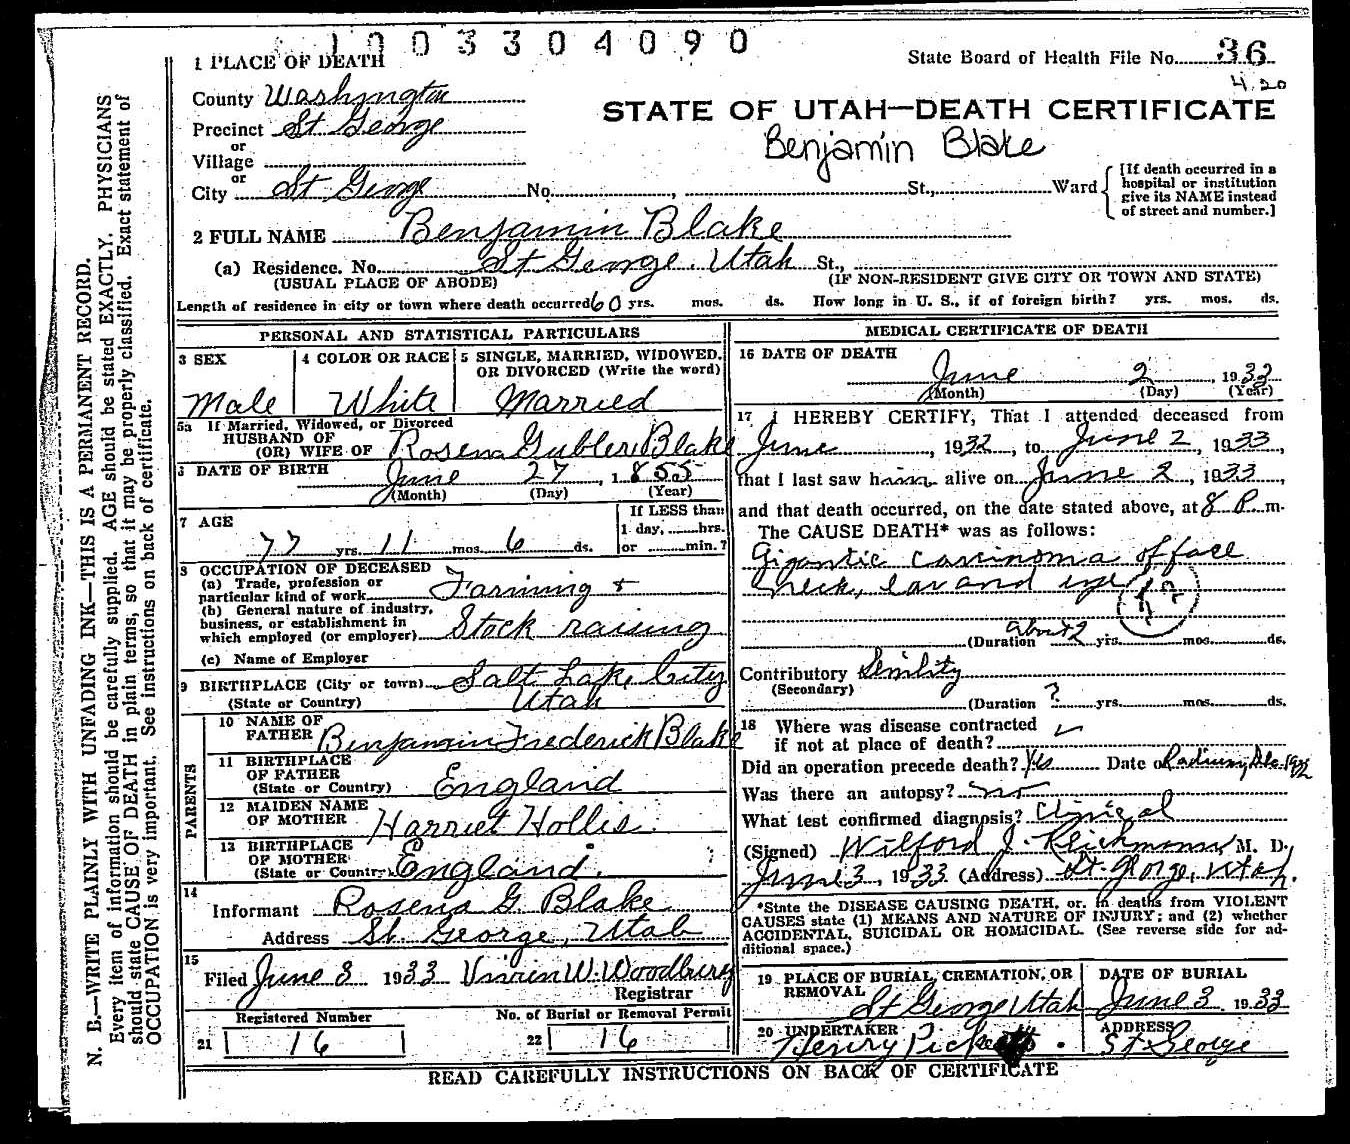 1003304090
1 PLACE OF DEATH
State Board of Health File No. 36
4.20
County Washington
STATE OF UTAH—DEATH CERTIFICATE
Precinct St George
Benjamin Blake
or
Village
or
City St George No. , St., Ward
[If death occurred in a
hospital or institution
give its NAME instead
of street and number.]
2 FULL NAME Benjamin Blake
(a) Residence. No. St George, Utah St.,
(USUAL PLACE OF ABODE) (IF NON-RESIDENT GIVE CITY OR TOWN AND STATE)
Length of residence in city or town where death occurred 60 yrs. mos. ds. How long in U. S., if of foreign birth? yrs. mos. ds.
PERSONAL AND STATISTICAL PARTICULARS
3 SEX
Male
4 COLOR OR RACE
White
5 SINGLE, MARRIED, WIDOWED,
OR DIVORCED (Write the word)
Married
5a If Married, Widowed, or Divorced
HUSBAND OF
(OR) WIFE OF Rosena Gubler Blake
6 DATE OF BIRTH
June 27, 1855
(Month) (Day) (Year)
7 AGE
77 yrs. 11 mos. 6 ds.
If LESS than
1 day, hrs.
or min.?
8 OCCUPATION OF DECEASED
(a) Trade, profession or
particular kind of work Farming &
(b) General nature of industry,
business, or establishment in
which employed (or employer) Stock raising
(c) Name of Employer
9 BIRTHPLACE (City or town) Salt Lake City
(State or Country) Utah
PARENTS
10 NAME OF
FATHER Benjamin Frederick Blake
11 BIRTHPLACE
OF FATHER
(State or Country) England
12 MAIDEN NAME
OF MOTHER Harriet Hollis.
13 BIRTHPLACE
OF MOTHER
(State or Country) England.
14
Informant Rosena G Blake
Address St. George, Utah
15
Filed June 3 1933 Vivien W. Woodbury
Registrar
Registered Number
21 16
No. of Burial or Removal Permit
22 16
MEDICAL CERTIFICATE OF DEATH
16 DATE OF DEATH
June 2, 1933
(Month) (Day) (Year)
17 I HEREBY CERTIFY, That I attended deceased from
June, 1932, to June 2, 1933,
that I last saw him alive on June 2, 1933,
and that death occurred, on the date stated above, at 8 P m.
The CAUSE DEATH* was as follows:
Gigantic carcinoma of face
neck, ear and eye
(Duration about 2 yrs. mos. ds.
Contributory Senility
(Secondary)
(Duration ? yrs. mos. ds.
18 Where was disease contracted
if not at place of death?
Did an operation precede death? Yes Date of Radium, Dec. 1932
Was there an autopsy? no
What test confirmed diagnosis? Clinical
(Signed) Wilford J. Reichmann M. D.
June 3, 1933 (Address) St. George, Utah.
*State the DISEASE CAUSING DEATH, or, in deaths from VIOLENT
CAUSES state (1) MEANS AND NATURE OF INJURY; and (2) whether
ACCIDENTAL, SUICIDAL OR HOMICIDAL. (See reverse side for ad-
ditional space.)
19 PLACE OF BURIAL, CREMATION, OR
REMOVAL St George Utah
DATE OF BURIAL
June 3 1933
20 UNDERTAKER
Henry Pickett
ADDRESS
St George
READ CAREFULLY INSTRUCTIONS ON BACK OF CERTIFICATE
N. B.—WRITE PLAINLY WITH UNFADING INK—THIS IS A PERMANENT RECORD.
Every item of information should be carefully supplied. AGE should be stated EXACTLY. PHYSICIANS
should state CAUSE OF DEATH in plain terms, so that it may be properly classified. Exact statement of
OCCUPATION is very important. See instructions on back of certificate.